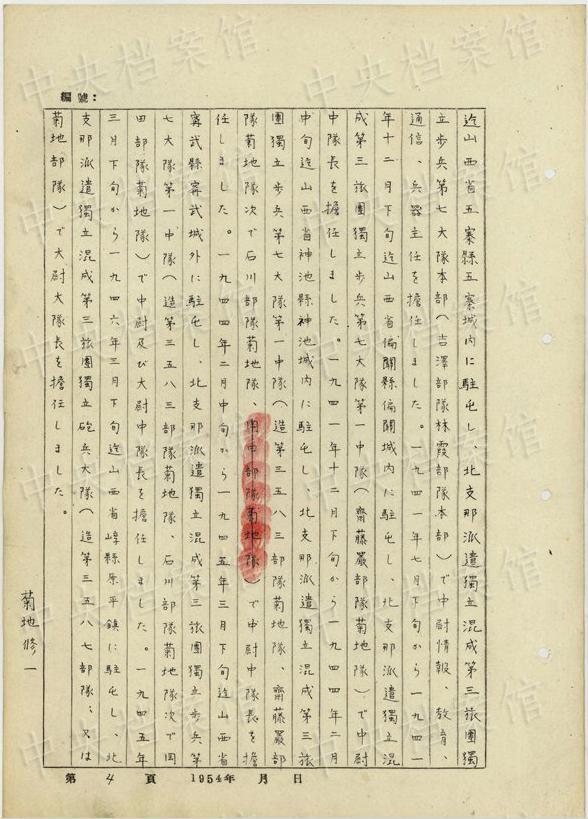 編號:
迄山西省五寨縣五寨城内に駐屯し、北支那派遣獨立混成第三旅團獨
立歩兵第七大隊本部(吉澤部隊林霞部隊本部)で中尉情報、教育、
通信、兵器主任を擔任しました。一九四一年七月下旬から一九四一
年十二月下旬迄山西省偏關縣偏關城内に駐屯し、北支那派遣獨立混
成第三旅團獨立歩兵第七大隊第一中隊(齋藤嚴部隊菊地隊)で中尉
中隊長を擔任しました。一九四一年十二月下旬から一九四四年二月
中旬迄山西省神池縣神池城内に駐屯し、北支那派遣獨立混成第三旅
團獨立歩兵第七大隊第一中隊(造第三五八三部隊菊地隊、齋藤嚴部
隊菊地隊次で石川部隊菊地隊、田中部隊菊地隊)で中尉中隊長を擔
任しました。一九四四年二月中旬から一九四五年三月下旬迄山西省
寗武縣寗武城外に駐屯し、北支那派遣獨立混成第三旅團獨立歩兵第
七大隊第一中隊(造第三五八三部隊菊地隊、石川部隊菊地隊次で田
部隊菊地隊)で中尉及び大尉中隊長を擔任しました。一九四五年
三月下旬から一九四六年三月下旬迄山西省崞縣原平鎮に駐屯し、北
支那派遣獨立混成第三旅團獨立砲兵大隊(造第三五八七部隊、又は
菊地部隊)で大尉大隊長を擔任しました。
菊地修一
第 4 頁 1954年 月 日
中央档案馆